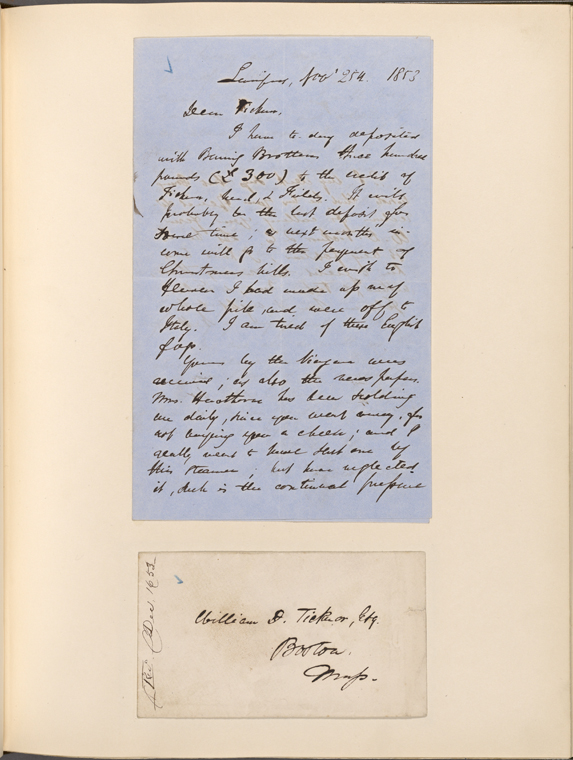 Liverpool, Nov' 25th. 1853
Dear Ticknor,
I have to-day deposited
with Baring Brothers three hundred
pounds (£ 300) to the credit of
Ticknor, Reed, & Fields. It will
probably be the last deposit for
some time; as next month's in-
come will go to the payment of
Christmas bills. I wish to
Heaven I had made up my
whole pile and were off to
Italy. I am tired of these English
fogs.
Yours by the Niagara was
received; as also the newspapers.
Mrs. Hawthorne has been scolding
me daily, since you went away, for
not buying you a cheese; and I
really meant to have sent one by
this steamer; but have neglected
it, such is the continual pressure
William D. Ticknor, Esq.
Boston.
Mass.
Rec'd Dec. 1853